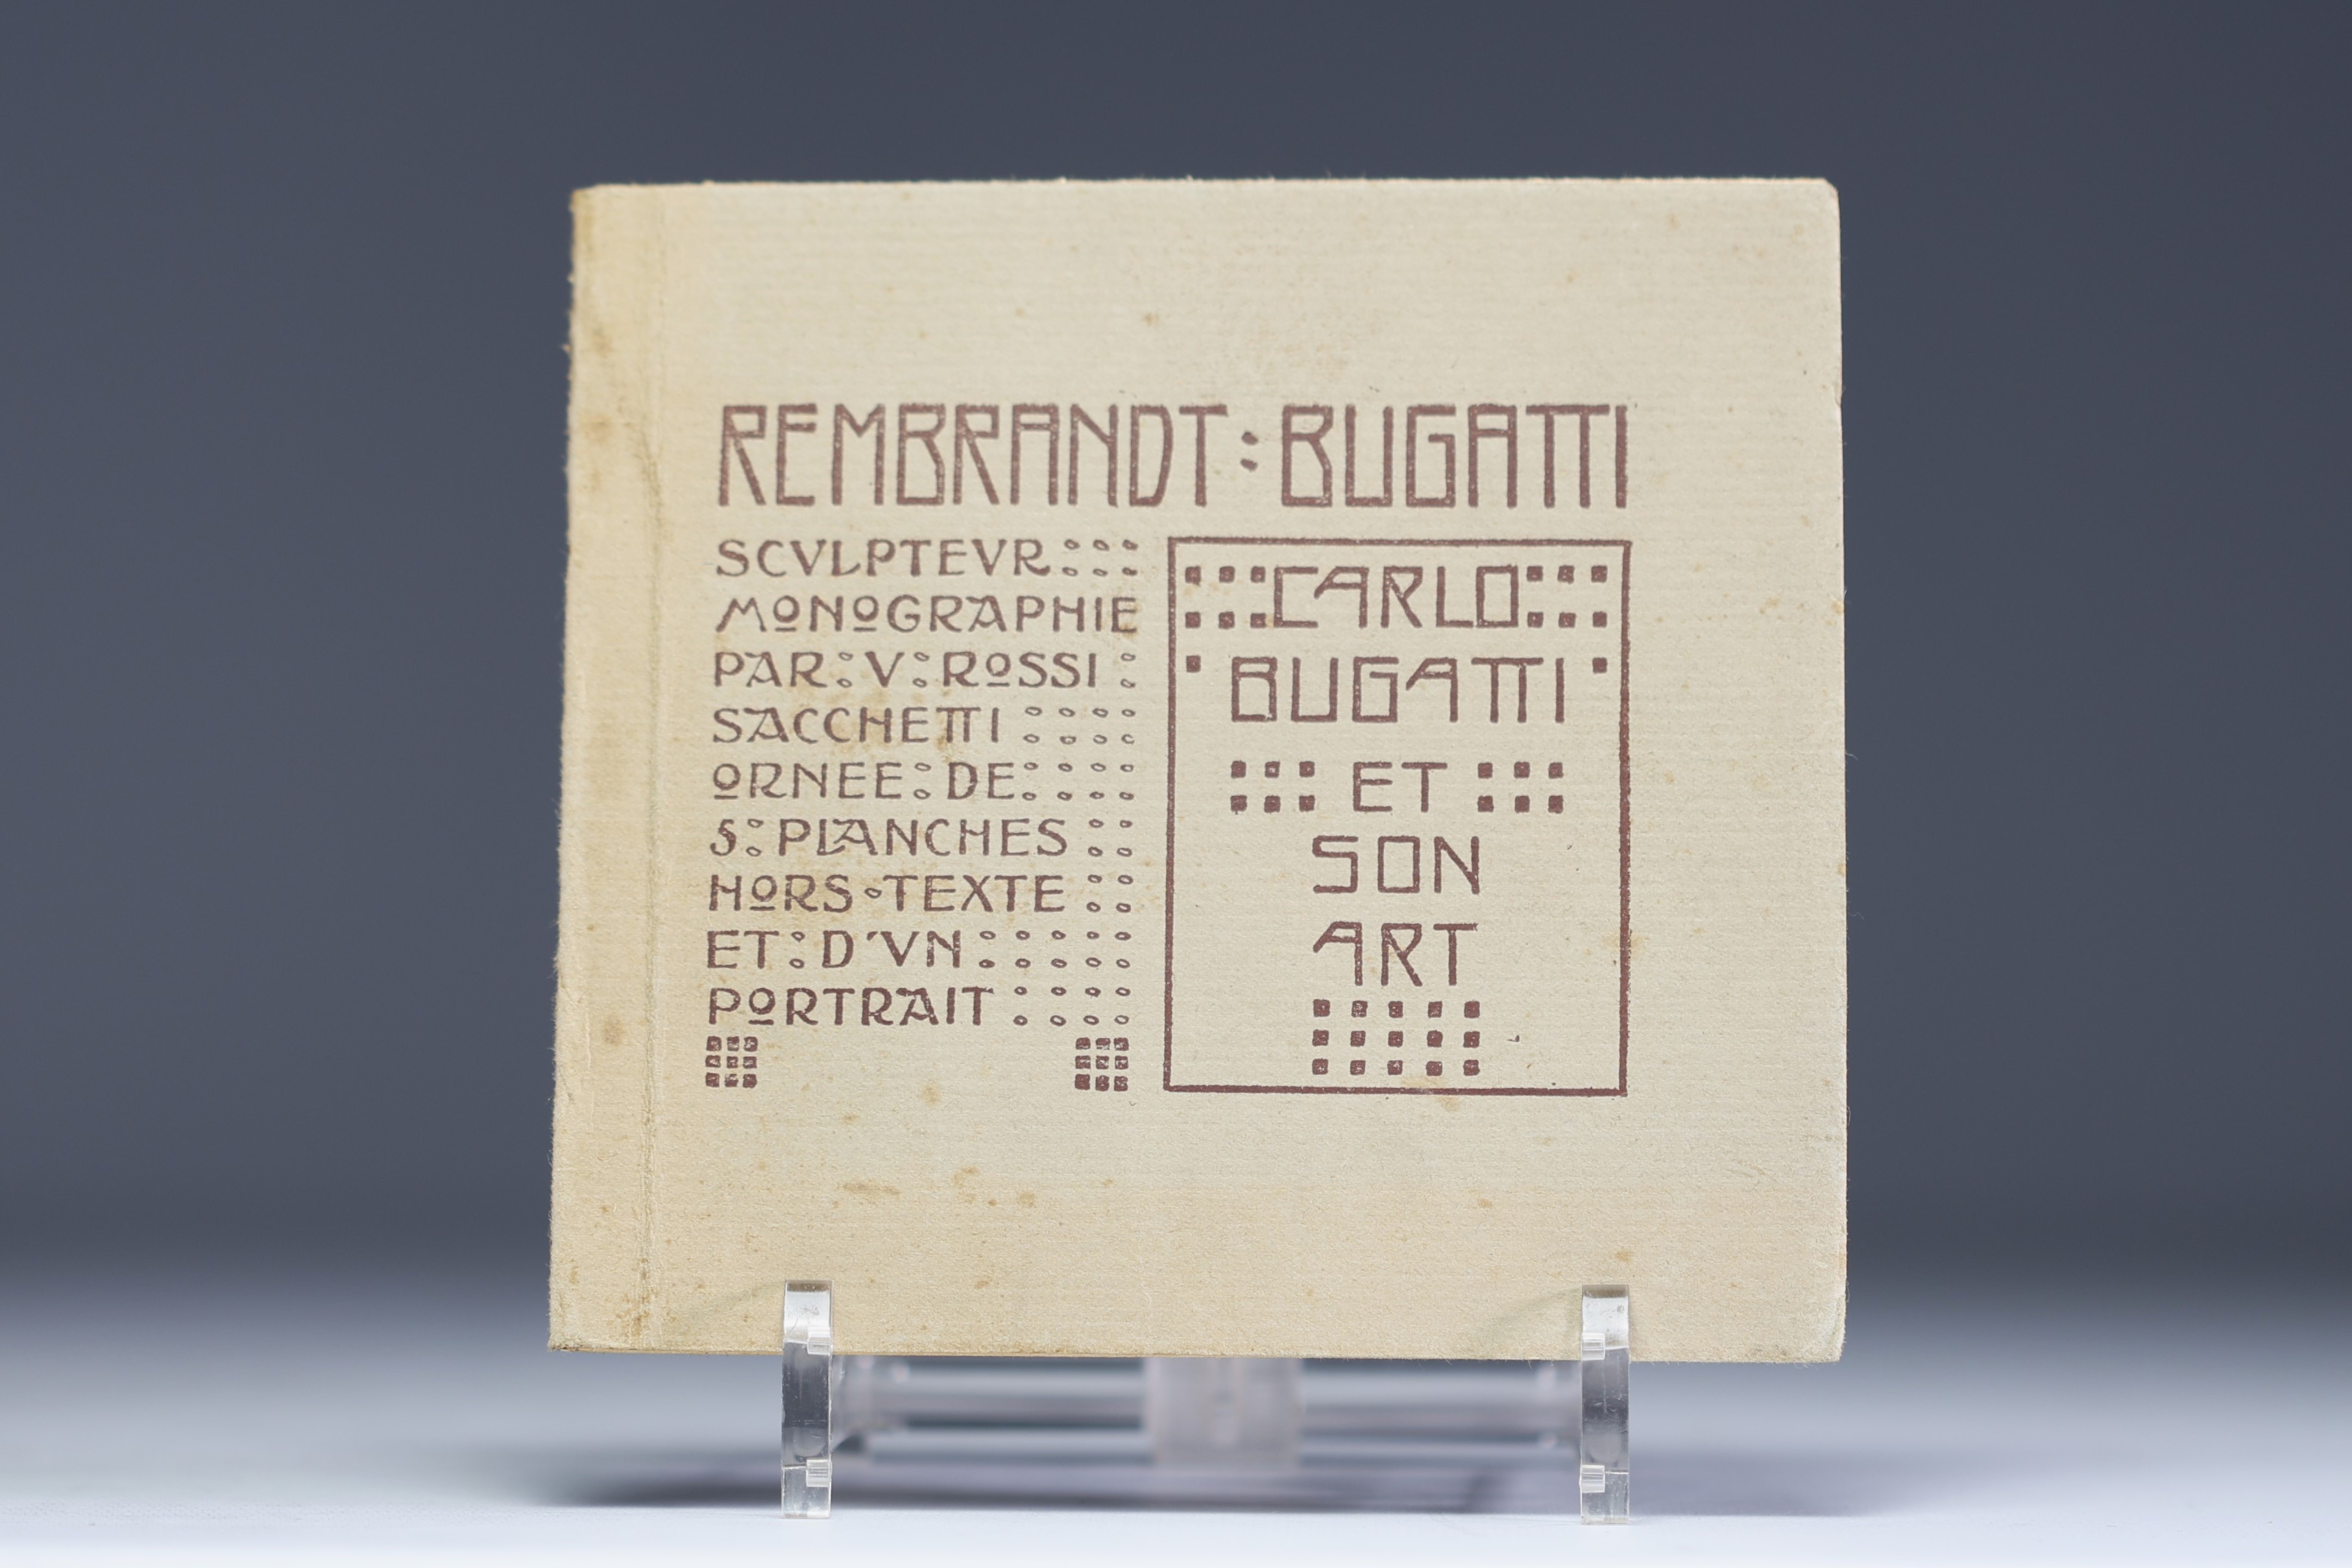 REMBRANDT : BUGATTI
SCVLPTEVR
MONOGRAPHIE
PAR : V : ROSSI :
SACCHETTI
ORNEE : DE
5 : PLANCHES
HORS TEXTE
ET : D'VN
PORTRAIT
CARLO
BUGATTI
ET
SON
ART